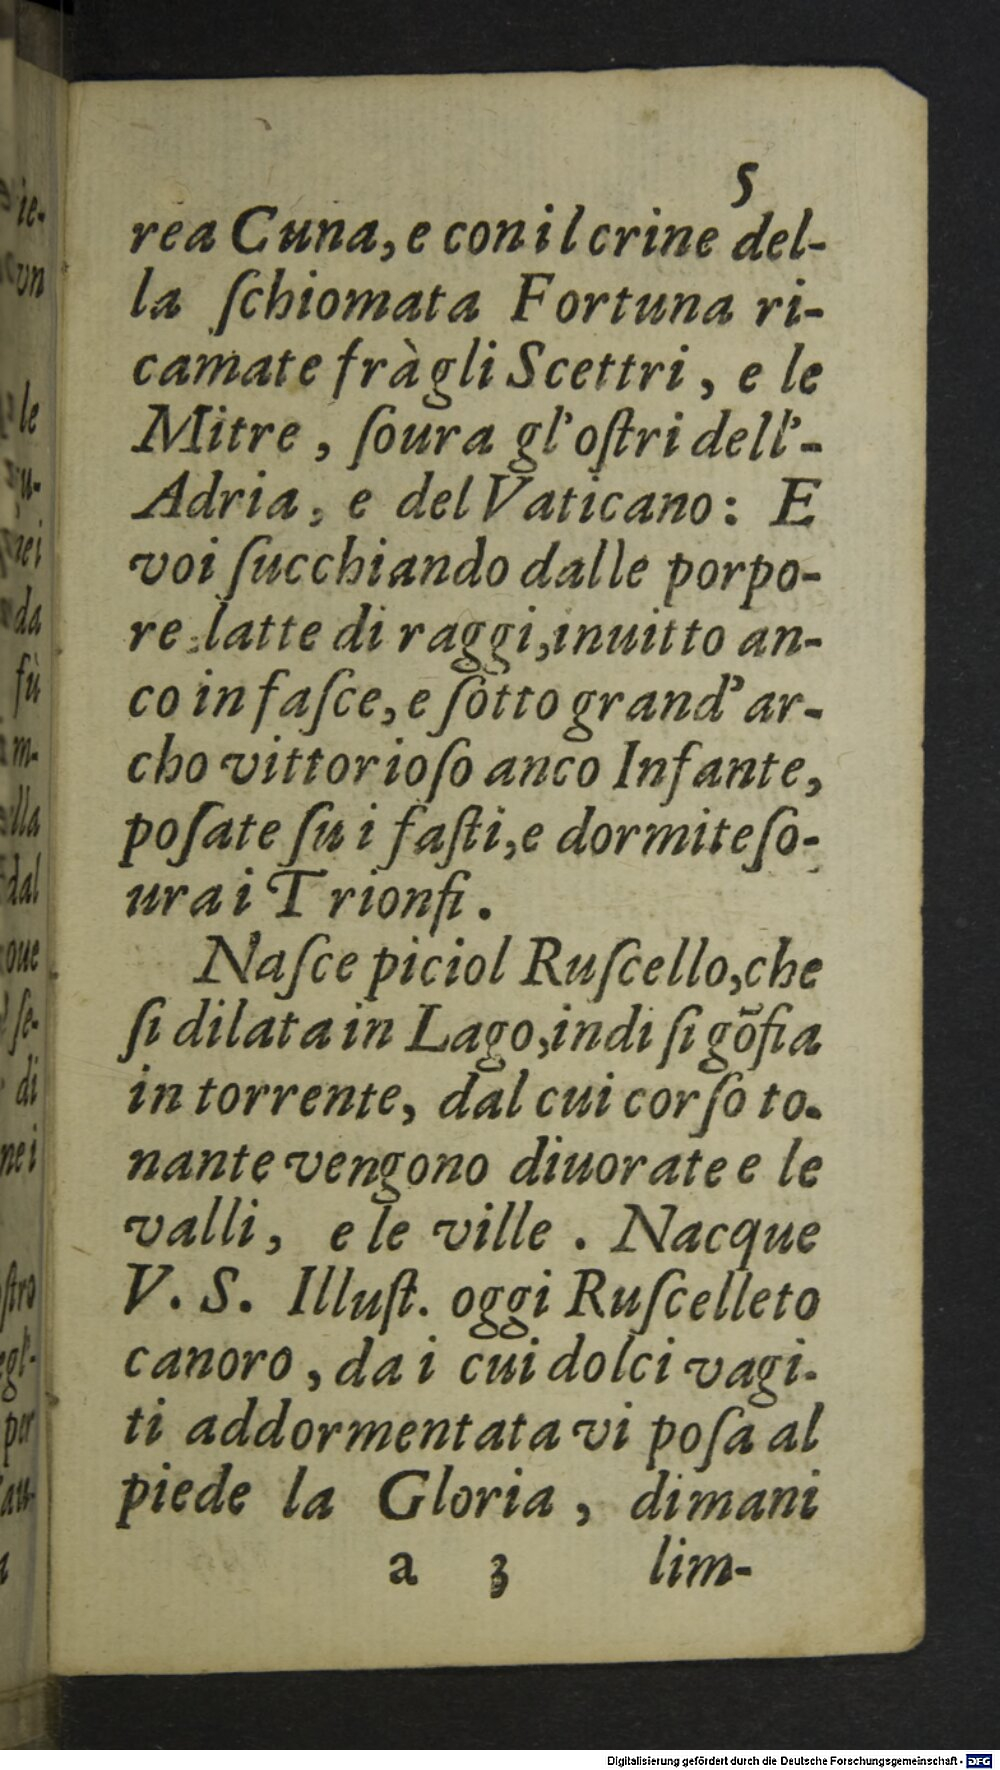 5
rea Cuna, e con il crine del-
la ſchiomata Fortuna ri-
camate frà gli Scettri, e le
Mitre, ſoura gl'oſtri dell'-
Adria, e del Vaticano: E
voi ſucchiando dalle porpo-
re latte di raggi, inuitto an-
co in faſce, e ſotto grand'ar-
cho vittorioſo anco Infante,
poſate ſu i faſti, e dormite ſo-
ura i Trionfi.
Naſce piciol Ruſcello, che
ſi dilata in Lago, indi ſi gõfia
in torrente, dal cui corſo to-
nante vengono diuorate e le
valli, e le ville. Nacque
V. S. Illuſt. oggi Ruſcelleto
canoro, da i cui dolci vagi-
ti addormentata vi poſa al
piede la Gloria, dimani
a 3 lim-
ie-
vn
le
u-
nei
da
fù
m-
lla
dal
oue
ſe-
di
nei
ſtro
egl'-
per
au-
Digitalisierung gefördert durch die Deutsche Forschungsgemeinschaft - DFG